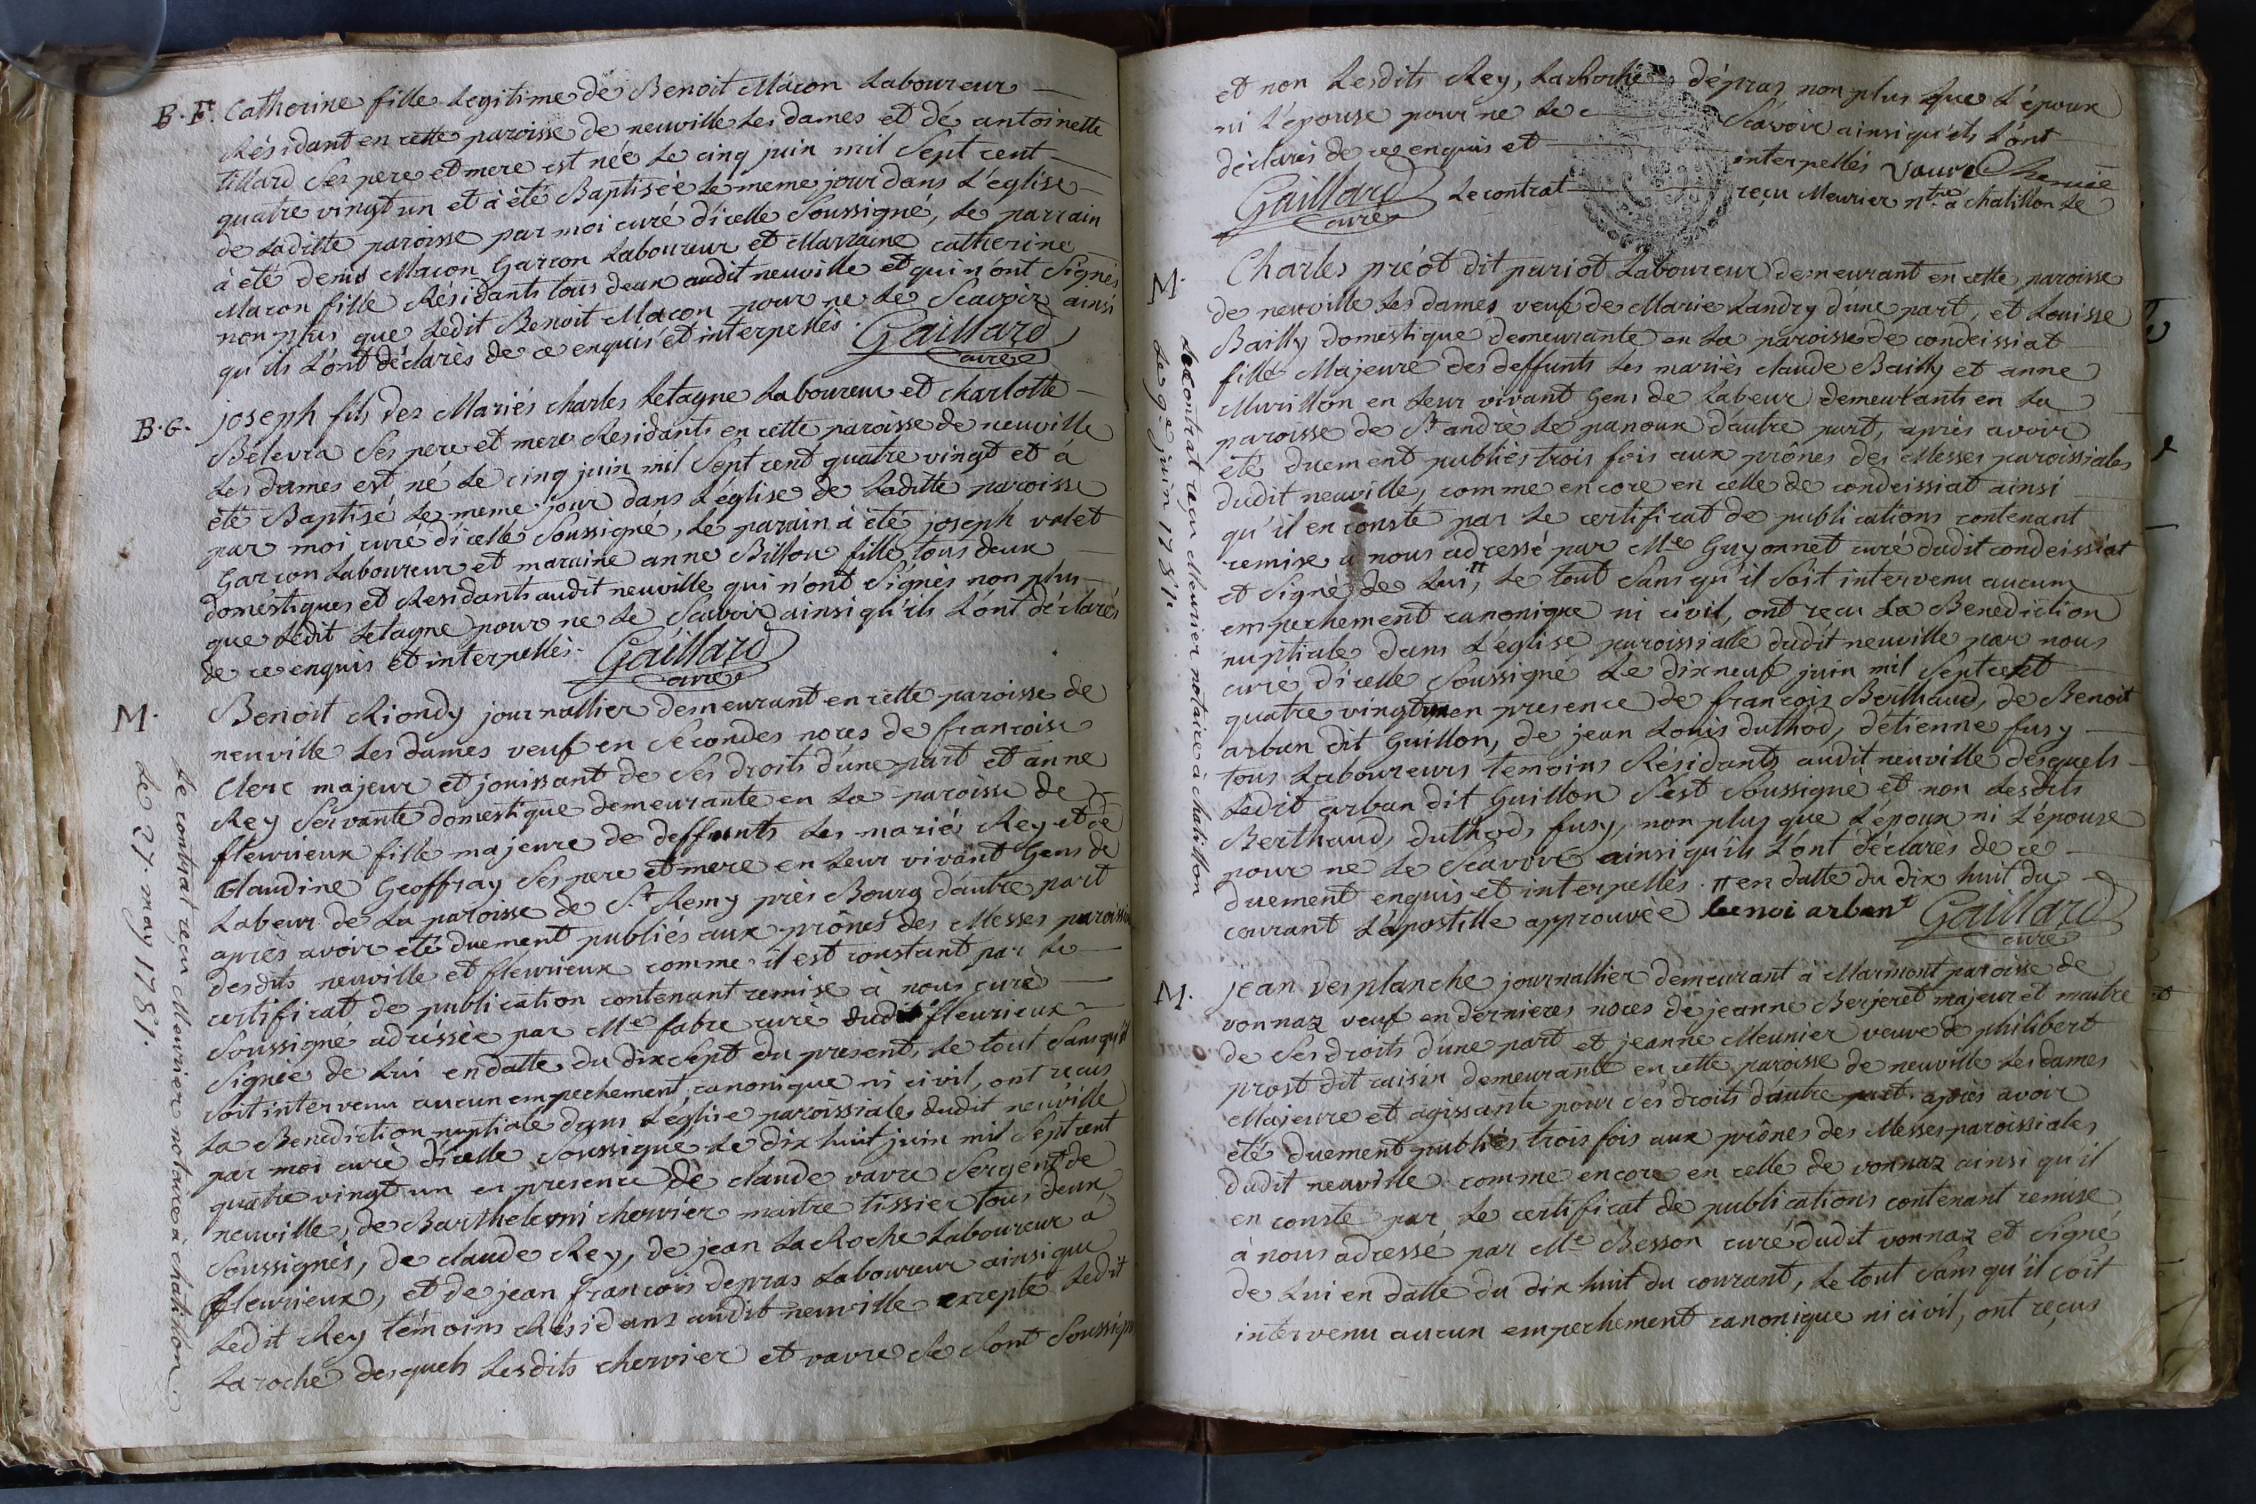 B. F. Catherine fille Legitime de Benoit Macon Laboureur
Résidant en cette paroisse de neuville Les dames et dé antoinette
tillard Ses pere et mere est née Le cinq juin mil Sept cent
quatre vingt un et à été Baptisée Le meme jour dans L'eglise
de Laditte paroisse par moi curé d'icelle Soussigné, Le parrain
à été denis Macon Garcon Laboureur et Marraine catherine
Macon fille Résidants tous deux audit neuville et qui n'ont Signés
non plus que Ledit Benoit Macon pour ne Le Scavoir ainsi
qu'ils L'ont déclarés de ce enquis et interpellés. Gaillard
curé
B. G. joseph fils des Mariés charles Letagne Laboureur et charlotte
Belevra Ses pere et mere Residants en cette paroisse de neuville
Les dames est né Le cinq juin mil Sept cent quatre vingt et à
été Baptisé Le meme jour dans L'église de Laditte paroisse
par moi curé d'icelle Soussigné, Le parain à été joseph valet
Garcon Laboureur et maraine anne Billon fille tous deux
domestiques et Residants audit neuville qui n'ont Signés non plus
que Ledit Letagne pour ne Le Scavoir ainsi qu'ils L'ont déclarés
de ce enquis et interpellés. Gaillard
curé
M. Benoit Riondy journallier demeurant en cette paroisse de
neuville Les dames veuf en Sécondes noces de francoise
Clerc majeur et jouissant de Ses droits d'une part et anne
Rey Servante domestique demeurante en La paroisse de
fleurieux fille majeure de deffunts Les mariés Rey et de
Claudine Geoffray Ses pere et mere en Leur vivant Gens de
Labeur de La paroisse de St Remy près Bourg d'autre part
après avoir été duement publiés aux prônes des Messes paroissia
desdits neuville et fleurieux comme il est constant par Le
certificat de publication contenant remise à nous curé
Soussigné adréssée par Me fabre curé dudit fleurieux
Signée de Lui en datte du dix Sept du present, Le tout Sans qu'il
Soit intervenu aucun empechement canonique ni civil, ont recus
La Benediction nuptiale dans L'église paroissiale dudit neuville
par moi curé d'icelle Soussigné Le dix huit juin mil Sept cent
quatre vingt un en presence de claude vavre Sergent de
neuville, de Barthelemi chervier maitre tissier tous deux
Soussignés, de claude Rey, de jean LaRoche Laboureur à
fleurieux, et de jean francois depras Laboureur ainsi que
Ledit Rey témoins Résidans audit neuville excepté Ledit
La roche desquels Lesdits chervier et vavre Se Sont Soussignés
Le contrat recu Meurier notaire à chatillon
Le 27 may 1781.
et non Lesdits Rey, LaRoche dépras non plus que L'époux
ni L'épouse pour ne Le Scavoir ainsi qu'ils L'ont
déclarés de ce enquis et interpellés vavre Chervié
Gaillard curé Le contrat reçu Meurier nre à chatillon Le
M. Charles préot dit pariot Laboureur demeurant en cette paroisse
de neuville Les dames veuf de Marie Landry d'une part, et Louisse
Bailly domestique demeurante en La paroisse de condeissiat
fille Majeure des deffunts Les mariés claude Bailly et anne
Murillon en Leur vivant Gens de Labeur demeurants en La
paroisse de St andré Le panoux d'autre part, après avoir
été duement publiés trois fois aux prônes des Messes paroissiales
dudit neuville, comme encore en celle de condeissiat ainsi
qu'il en conste par Le certificat de publications contenant
remise à nous adressé par Me Guyonnet curé dudit condeissiat
et Signé de Lui, Le tout Sans qu'il Soit intervenu aucun
empechement canonique ni civil, ont reçu La Benediction
nuptiale dans L'église paroissialle dudit neuville par nous
curé d'icelle Soussigné Le dix neuf juin mil Sept cent
quatre vingt un en presence de francois Berthaud, de Benoit
arban dit Guillon, de jean Louis duthod, d'etienne fusy
tous Laboureurs temoins Résidants audit neuville desquels
Ledit arban dit Guillon S'est Soussigné et non Lesdits
Berthaud, duthod, fusy, non plus que L'époux ni L'épouse
pour ne Le Scavoir ainsi qu'ils L'ont déclarés de ce
duement enquis et interpellés. en datte du dix huit du
courant L'apostille approuvée benoi arbant Gaillard
curé
Le contrat reçu Meurier notaire à chatillon
Le 9e juin 1781.
M. jean desplanche journallier demeurant à Marmont paroisse de
vonnaz veuf en dernieres noces de jeanne Berjeret majeur et maitre
de Ses droits d'une part et jeanne Meunier veuve de philibert
prost dit raisin demeurante en cette paroisse de neuville Les dames
Majeure et agissante pour Ses droits d'autre part. après avoir
été duement publiés trois fois aux prônes des Messes paroissiales
dudit neuville comme encore en celle de vonnaz ainsi qu'il
en conste par Le certificat de publications contenant remise
à nous adressé par Me Besson curé dudit vonnaz et Signé
de Lui en datte du dix huit du courant, Le tout Sans qu'il Soit
intervenu aucun empechement canonique ni civil, ont reçus